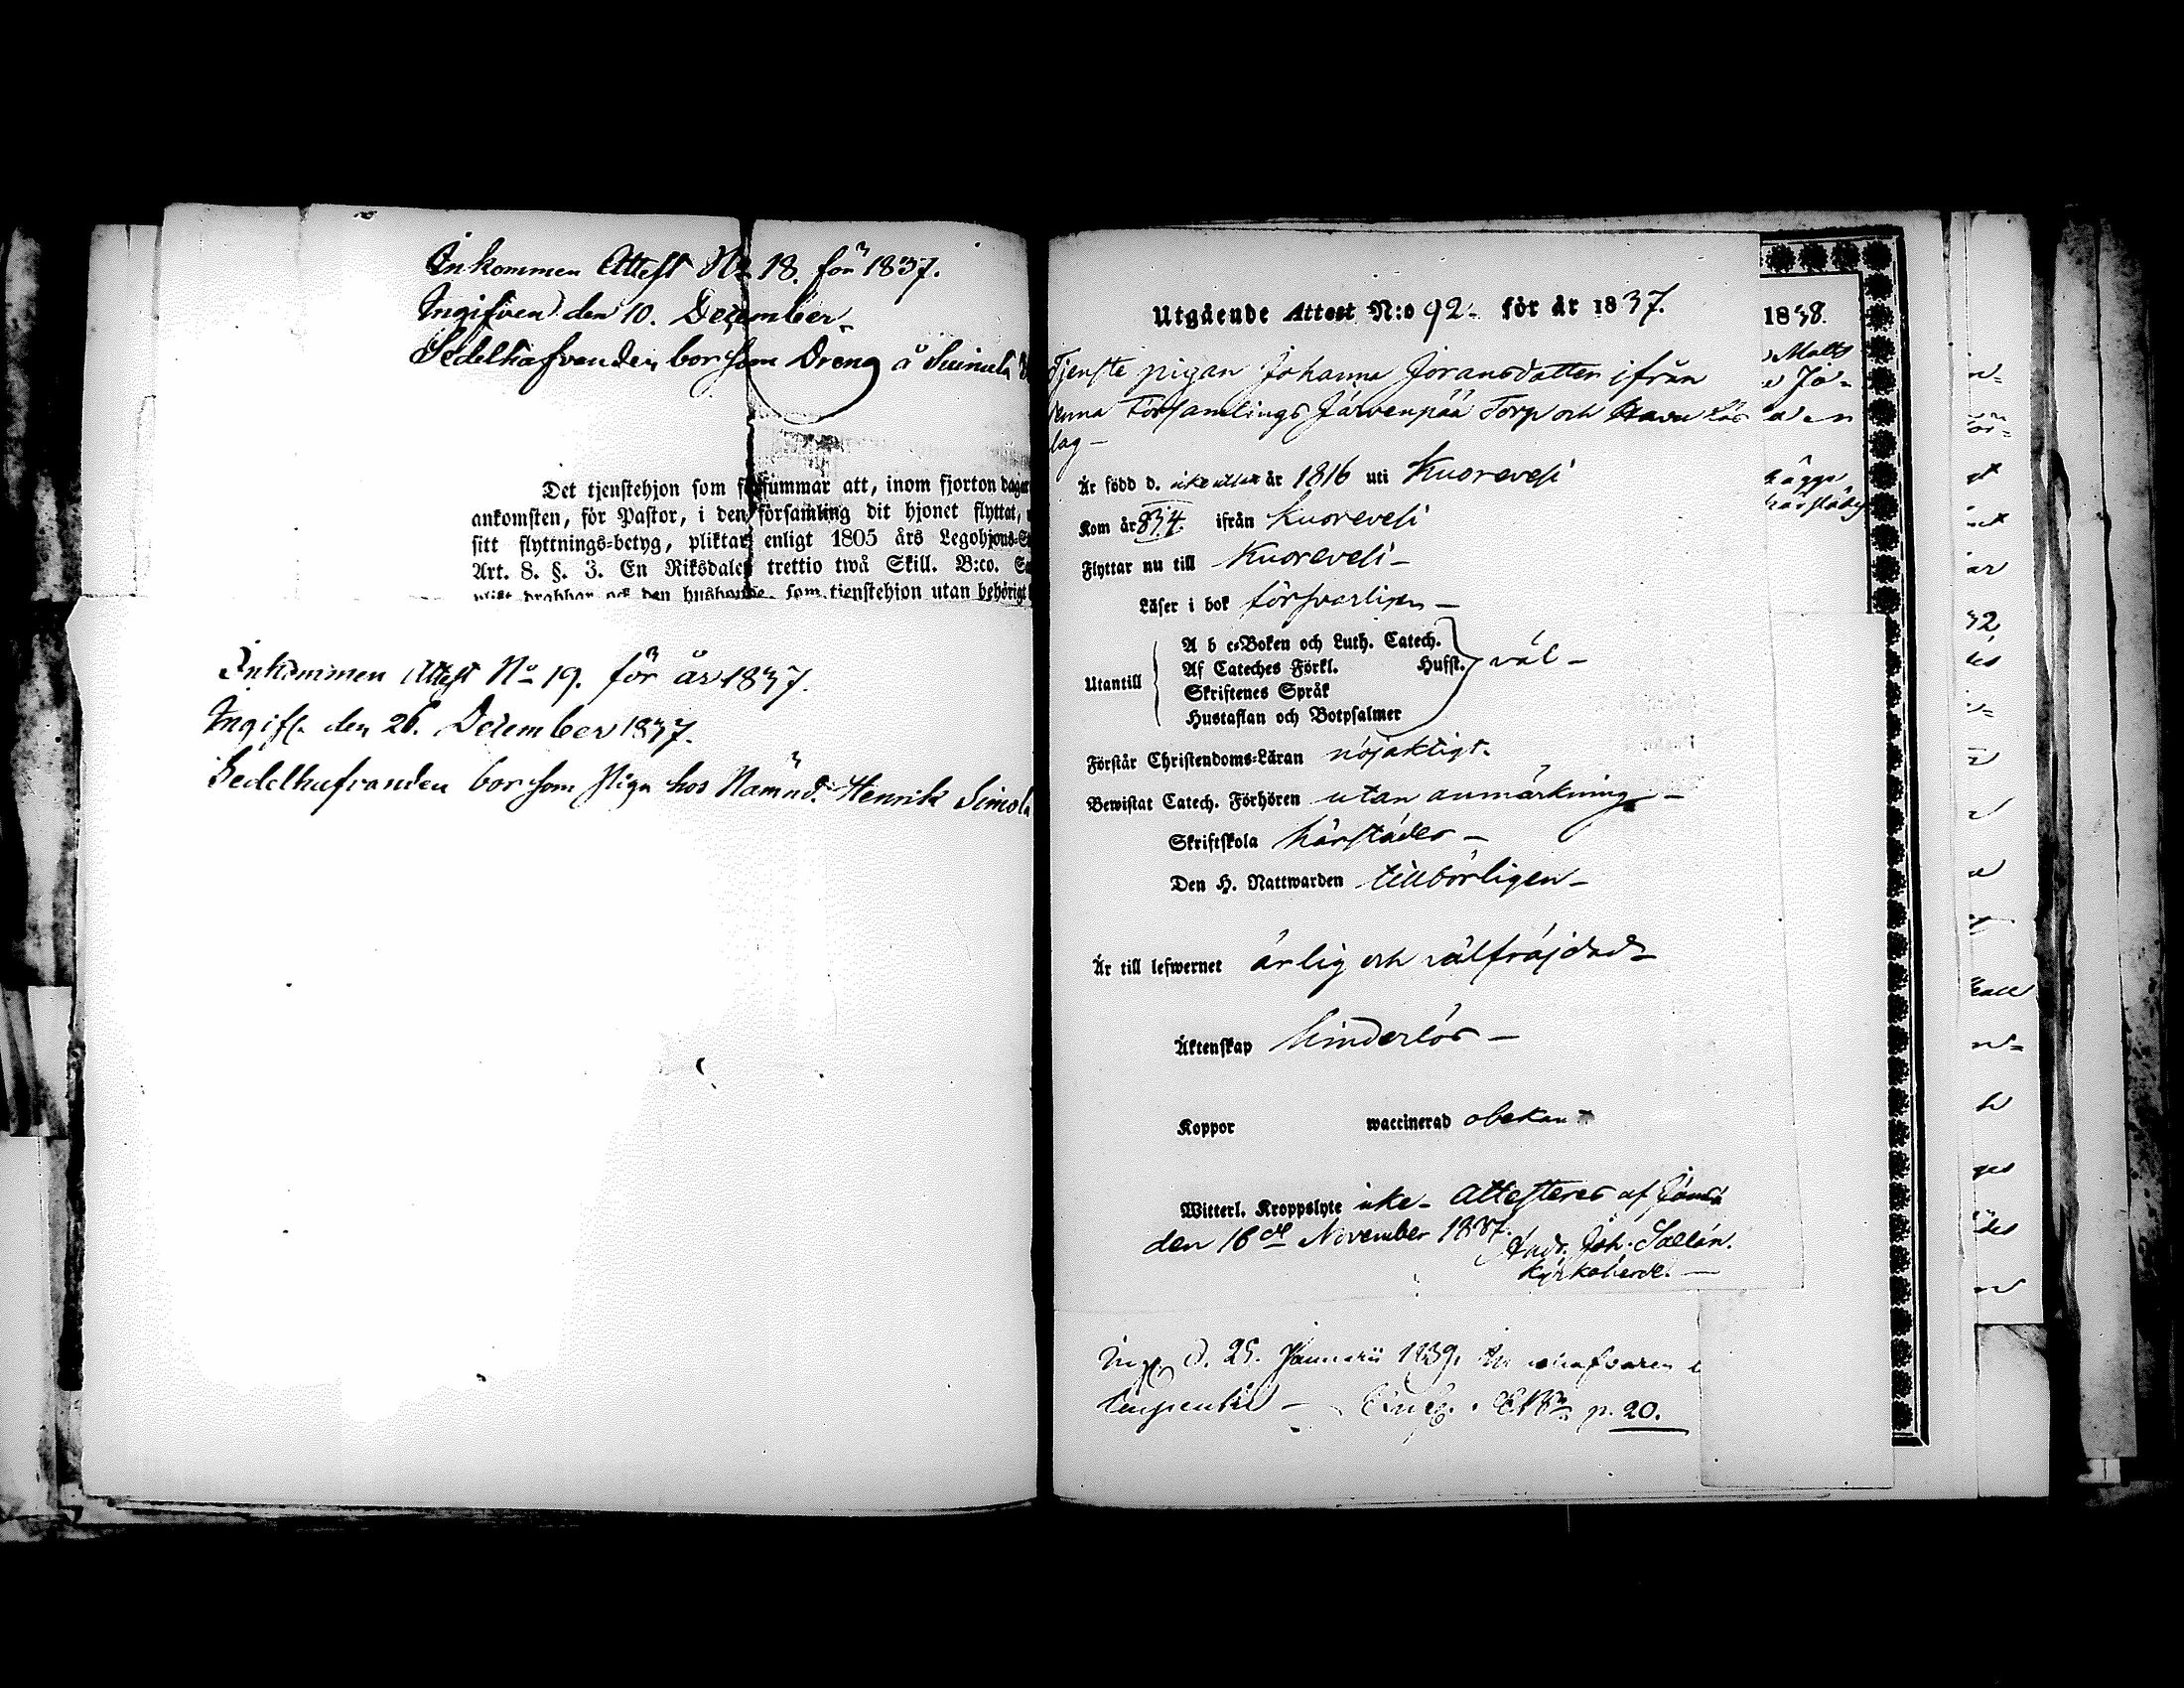 Inkommen Attest No 18. för 1837.
Ingifven den 10. December.
Sedelhafvanden bor som Dreng å
Det tjenstehjon som försummar att, inom fjorton dagar
ankomsten, för Pastor, i den församling dit hjonet flyttat,
sitt flyttnings-betyg, pliktar enligt 1805 års Legohjons-
Art. 8. §. 3. En Riksdaler trettio twå Skill. B:co.
plikt drabbar ock den husbonde, som tjenstehjon utan behörigt
Inkommen Attest No 19. för år 1837.
Ingifv. den 26. December 1837.
Sedelhafvanden bor som Piga hos Nämnd. Henrik Simola
Utgående Attest N:o 92. för år 1837.
Tjenste pigan Johanna Joransdotter ifrån
denna Församlings Järvenpää Torp och
lag –
Är född d. icke år 1816 uti Kuorevesi
Kom år 834. ifrån Kuorevesi
Flyttar nu till Kuorevesi –
Läser i bok försvarligen –
Utantill
A b c-Boken och Luth. Catech.
Af Cateches Förkl. Husst. väl –
Skriftenes Språk
Hustaflan och Botpsalmer
Förstår Christendoms-Läran nöjaktigt.
Bewistat Catech. Förhören utan anmärkning –
Skriftskola härstädes –
Den H. Nattwarden tillbörligen –
Är till lefwernet ärlig och välfräjdad –
Äktenskap hinderlös –
Koppor waccinerad obekant
Witterl. Kroppslyte icke – Attesteres af Jämsä
den 16de November 1837.
Andr. Joh. Sallén.
Kyrkoherde. –
d. 25. Januarii 1839.
p. 20.
1838.
Matts